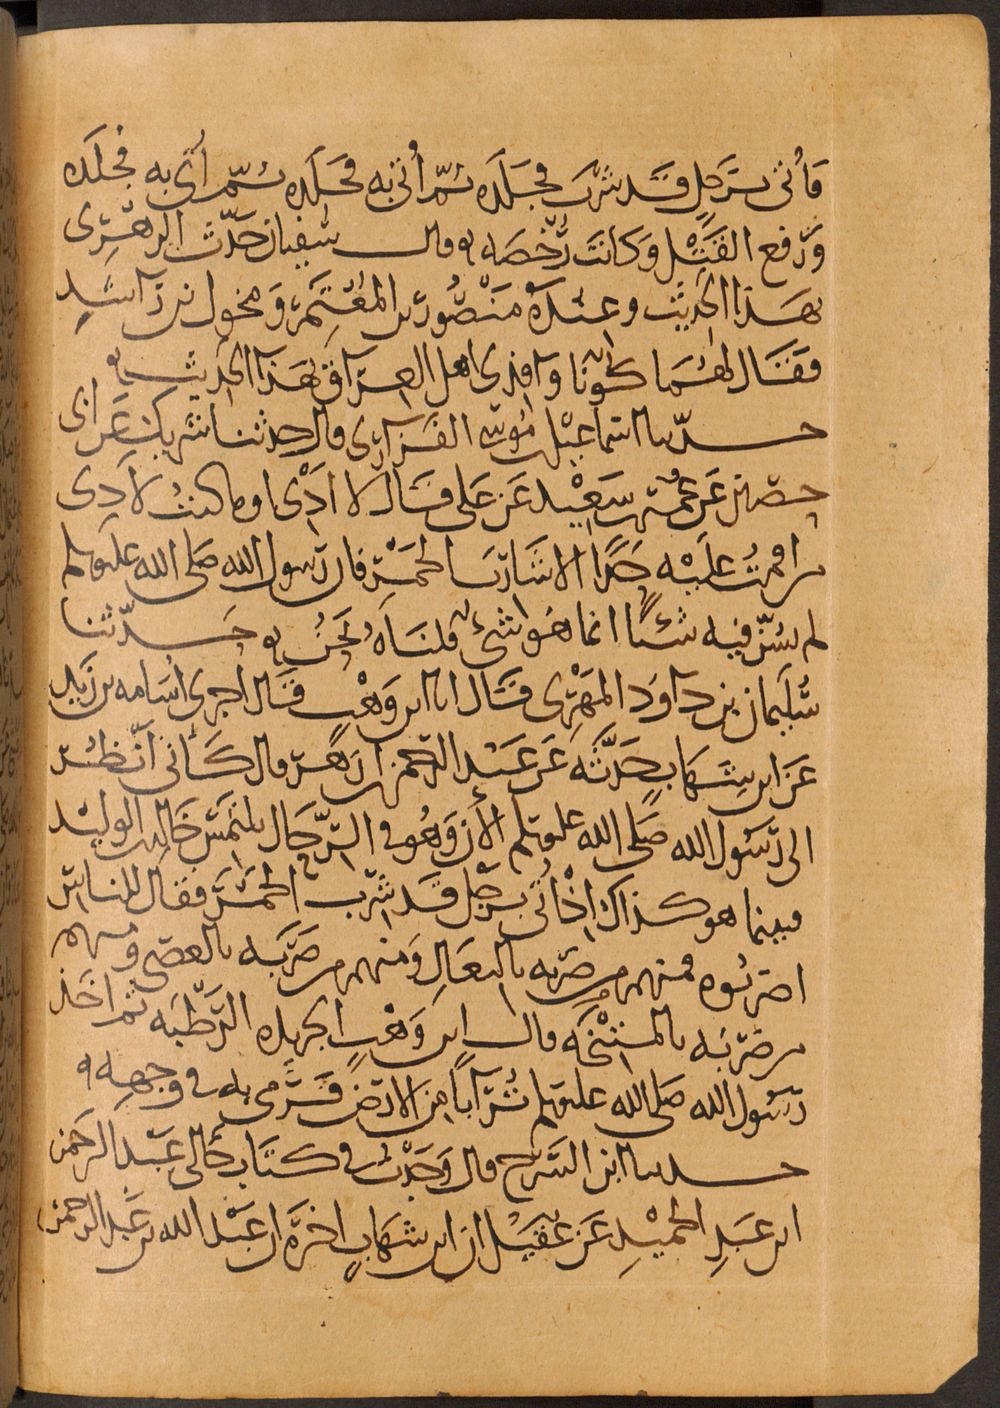 فأتى برجل قد شرب فجلده ثم أتى به فجلده ثم أتى به فجلده
ورفع القتل وكانت رخصه قال سفيان حدث الزهرى
بهذا الحديث وعنده منصور بن المعتمر ومخول بن راشد
فقال لهما كونا وافدى اهل العراق بهذا الحديث
حدثنا اسماعيل بن موسى الفزارى قال حدثنا شريك عن ابى
حصين عن عمير بن سعيد عن على قال لا ادى او ما كنت لادى
من اقمت عليه حدا الا شارب الخمر فان رسول الله صلى الله عليه وسلم
لم يسن فيه شيئا انما هو شئ قلناه نحن حدثنا
سليمان بن داود المهرى قال انا ابن وهب قال اخبرنى اسامه بن زيد
عن ابن شهاب حدثه عن عبد الرحمن بن ازهر قال كأنى انظر
الى رسول الله صلى الله عليه وسلم الآن وهو فى الرحال يلتمس رحل خالد بن الوليد
فبينما هو كذاك اذ أتى برجل قد شرب الخمر فقال للناس
اضربوه فمنهم من ضربه بالنعال ومنهم من ضربه بالعصى ومنهم
من ضربه بالمتيخه قال ابن وهب الجريده الرطبه ثم اخذ
رسول الله صلى الله عليه وسلم ترابا من الارض فرمى به فى وجهه
حدثنا ابن السرح قال وجدت فى كتاب خالى عبد الرحمن
ابن عبد الحميد عن عقيل ان ابن شهاب اخبره ان عبد الله بن عبد الرحمن